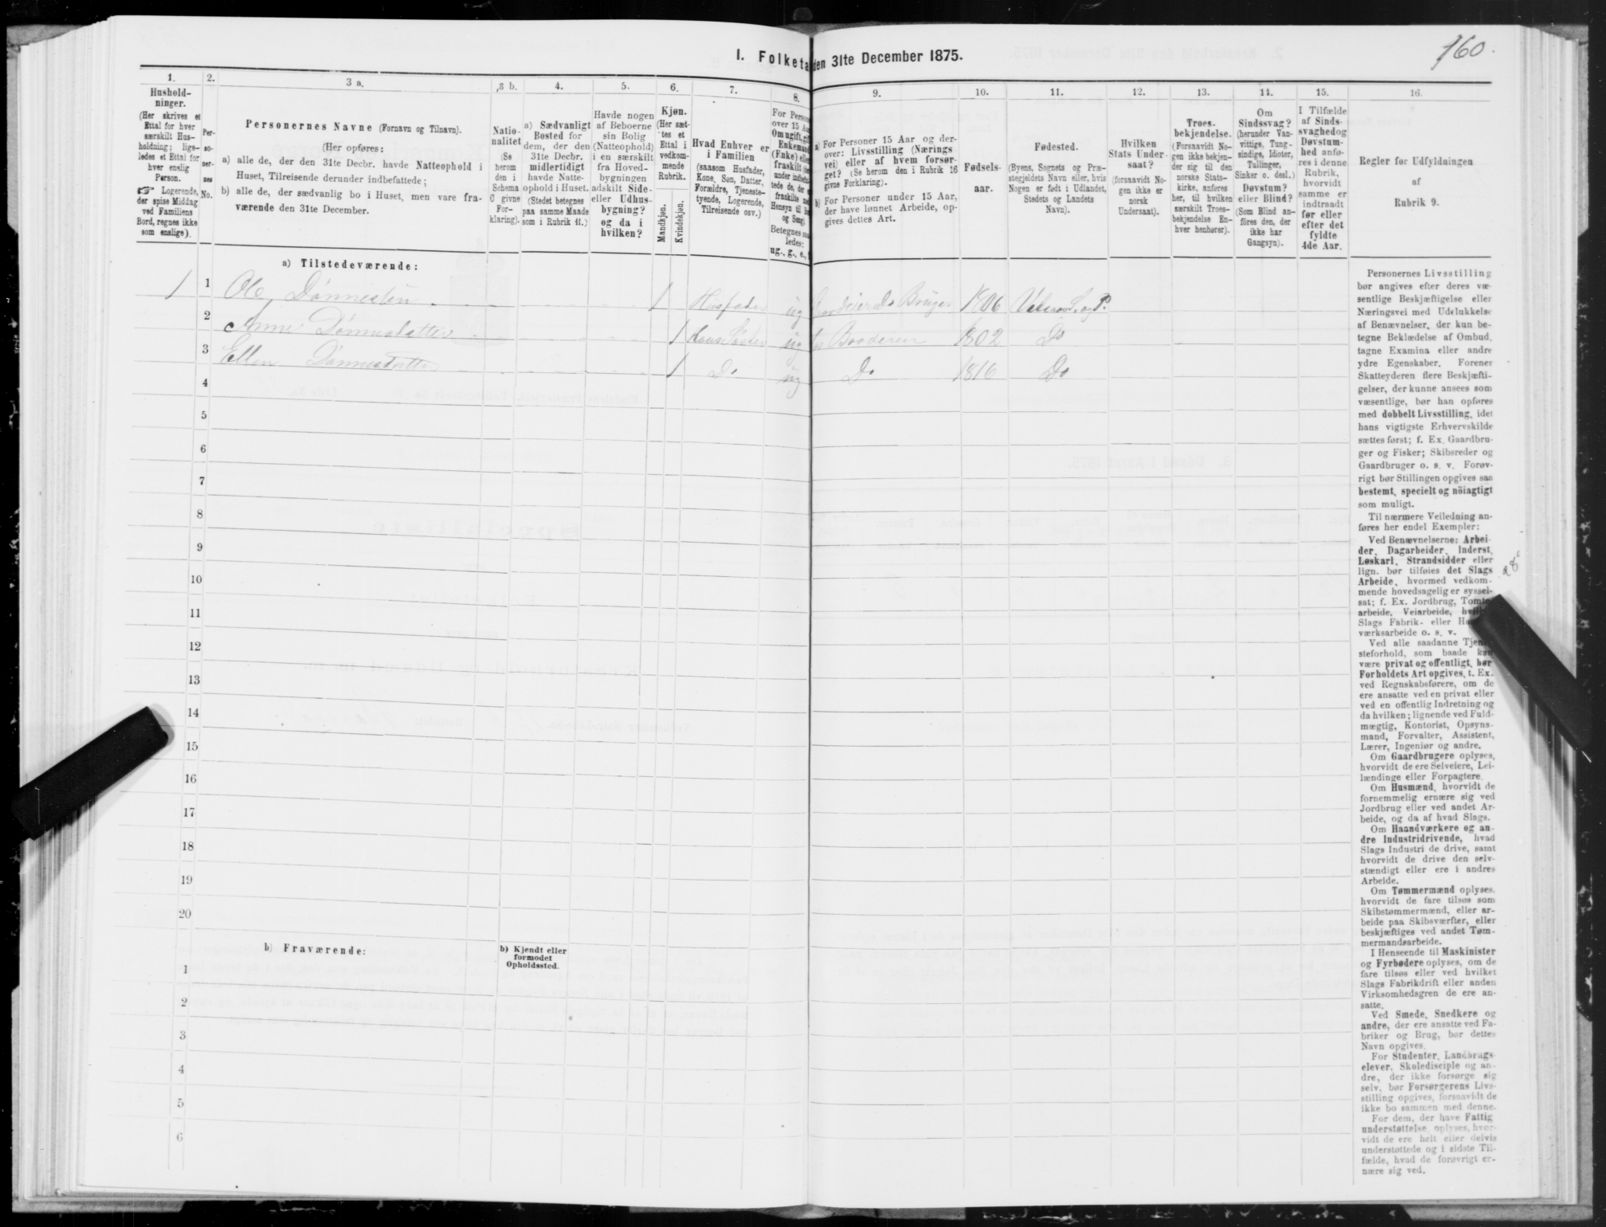 160.
I. Folketa den 31te December 1875.
1. 2. 3 a. 3 b. 4. 5. 6. 7. 8. 9. 10. 11. 12. 13. 14. 15. 16.
Hushold-
ninger.
(Her skrives et
Ettal for hver
særskilt Hus-
holdning; lige-
ledes et Ettal for
hver enslig
Person.
☞ Logerende,
der spise Middag
ved Familiens
Bord, regnes ikke
som enslige).
Per-
so-
ner-
nes
No.
Personernes Navne (Fornavn og Tilnavn).
(Her opføres:
a) alle de, der den 31te Decbr. havde Natteophold i
Huset, Tilreisende derunder indbefattede;
b) alle de, der sædvanlig bo i Huset, men vare fra-
værende den 31te December.
Natio-
nalitet
(Se
herom
den i
Schema
C givne
For-
klaring).
a) Sædvanligt
Bosted for
dem, der den
31te Decbr.
midlertidigt
havde Natte-
ophold i Huset.
(Stedet betegnes
paa samme Maade
som i Rubrik 11.)
Havde nogen
af Beboerne
sin Bolig
(Natteophold)
i en særskilt
fra Hoved-
bygningen
adskilt Side-
eller Udhus-
bygning?
og da i
hvilken?
Kjøn.
(Her sæt-
tes et
Ettal i
vedkom-
mende
Rubrik.
Mandkjøn.
Kvindekjøn.
Hvad Enhver er
i Familien
(saasom Husfader,
Kone, Søn, Datter,
Forældre, Tjeneste-
tyende, Logerende,
Tilreisende osv.)
For Person
over 15 Aa
Om ugift, gi
Enkeman
(Enke) elle
fraskilt
under indbefat-
tede de, der
fraskilte
Hensyn til
og Seng
Betegnes saa
ledes:
ug., g., e.,
a) For Personer 15 Aar og der-
over: Livsstilling (Nærings
vei) eller af hvem forsør-
get? (Se herom den i Rubrik 16
givne Forklaring).
b) For Personer under 15 Aar,
der have lønnet Arbeide, op-
gives dettes Art.
Fødsels-
aar.
Fødested.
(Byens, Sognets og Præ-
stegjeldets Navn eller, hvis
Nogen er født i Udlandet,
Stedets og Landets
Navn).
Hvilken
Stats Under-
saat?
(forsaavidt No-
gen ikke er
norsk
Undersaat).
Troes-
bekjendelse.
(Forsaavidt No-
gen ikke bekjen-
der sig til den
norske Stats-
kirke, anføres
her, til hvilken
særskilt Troes-
bekjendelse En-
hver henhører).
Om
Sindssvag?
(herunder Van-
vittige, Tung-
sindige, Idioter,
Tullinger,
Sinker o. desl.)
Døvstum?
eller Blind?
(Som Blind an-
føres den, der
ikke har
Gangsyn).
I Tilfælde
af Sinds-
svaghedog
Døvstum-
hed anfø-
res i denne
Rubrik,
hvorvidt
samme er
indtraadt
før eller
efter det
fyldte
4de Aar.
Regler for Udfyldningen
af
Rubrik 9.
a) Tilstedeværende:
1 1 Ole 1 ug 1806
2 1 ug 1802 Do
3 Ellen 1 Do ug Do 1816 Do
4
5
6
7
8
9
10
11
12
13
14
15
16
17
18
19
20
b) Fraværende:
b) Kjendt eller
formodet
Opholdssted.
1
2
3
4
5
6
Personernes Livsstilling
bør angives efter deres væ-
sentlige Beskjæftigelse eller
Næringsvei med Udelukkelse
af Benævnelser, der kun be-
tegne Beklædelse af Ombud,
tagne Examina eller andre
ydre Egenskaber. Forener
Skatteyderen flere Beskjæfti-
gelser, der kunne ansees som
væsentlige, bør han opføres
med dobbelt Livsstilling, idet
hans vigtigste Erhvervskilde
sættes først; f. Ex. Gaardbru-
ger og Fisker; Skibsreder og
Gaardbruger o. s. v. Forøv-
rigt bør Stillingen opgives saa
bestemt, specielt og nöiagtigt
som muligt.
Til nærmere Veiledning an-
føres her endel Exempler:
Ved Benævnelserne: Arbei-
der, Dagarbeider, Inderst,
Løskarl, Strandsidder eller
lign. bør tilføies det Slags
Arbeide, hvormed vedkom-
mende hovedsagelig er syssel-
sat; f. Ex. Jordbrug, Tomte-
arbeide, Veiarbeide,
Slags Fabrik- eller
værksarbeide o. s. v.
Ved alle saadanne
steforhold, som baade kan
være privat og offentligt, bør
Forholdets Art opgives, t. Ex.
ved Regnskabsførere, om de
ere ansatte ved en privat eller
ved en offentlig Indretning og
da hvilken; lignende ved Fuld-
mægtig, Kontorist, Opsyns-
mand, Forvalter, Assistent,
Lærer, Ingeniør og andre.
Om Gaardbrugere oplyses,
hvorvidt de ere Selveiere, Lei-
lændinge eller Forpagtere.
Om Husmænd, hvorvidt de
fornemmelig ernære sig ved
Jordbrug eller ved andet Ar-
beide, og da af hvad Slags.
Om Haandværkere og an-
dre Industridrivende, hvad
Slags Industri de drive, samt
hvorvidt de drive den selv-
stændigt eller ere i andres
Arbeide.
Om Tømmermænd oplyses,
hvorvidt de fare tilsøs som
Skibstømmermænd, eller ar-
beide paa Skibsværfter, eller
beskjæftiges ved andet Tøm-
mermandsarbeide.
I Henseende til Maskinister
og Fyrbødere oplyses, om de
fare tilsøs eller ved hvilket
Slags Fabrikdrift eller anden
Virksomhedsgren de ere an-
satte.
Ved Smede, Snedkere og
andre, der ere ansatte ved Fa-
briker og Brug, bør dettes
Navn opgives.
For Studenter, Landbrugs-
elever, Skoledisciple og an-
dre, der ikke forsørge sig
selv, bør Forsørgerens Livs-
stilling opgives, forsaavidt de
ikke bo sammen med denne.
For dem, der have Fattig
understøttelse, oplyses, hvor-
vidt de ere helt eller delvis
understøttede og i sidste Til-
fælde, hvad de forøvrigt er-
nære sig ved.